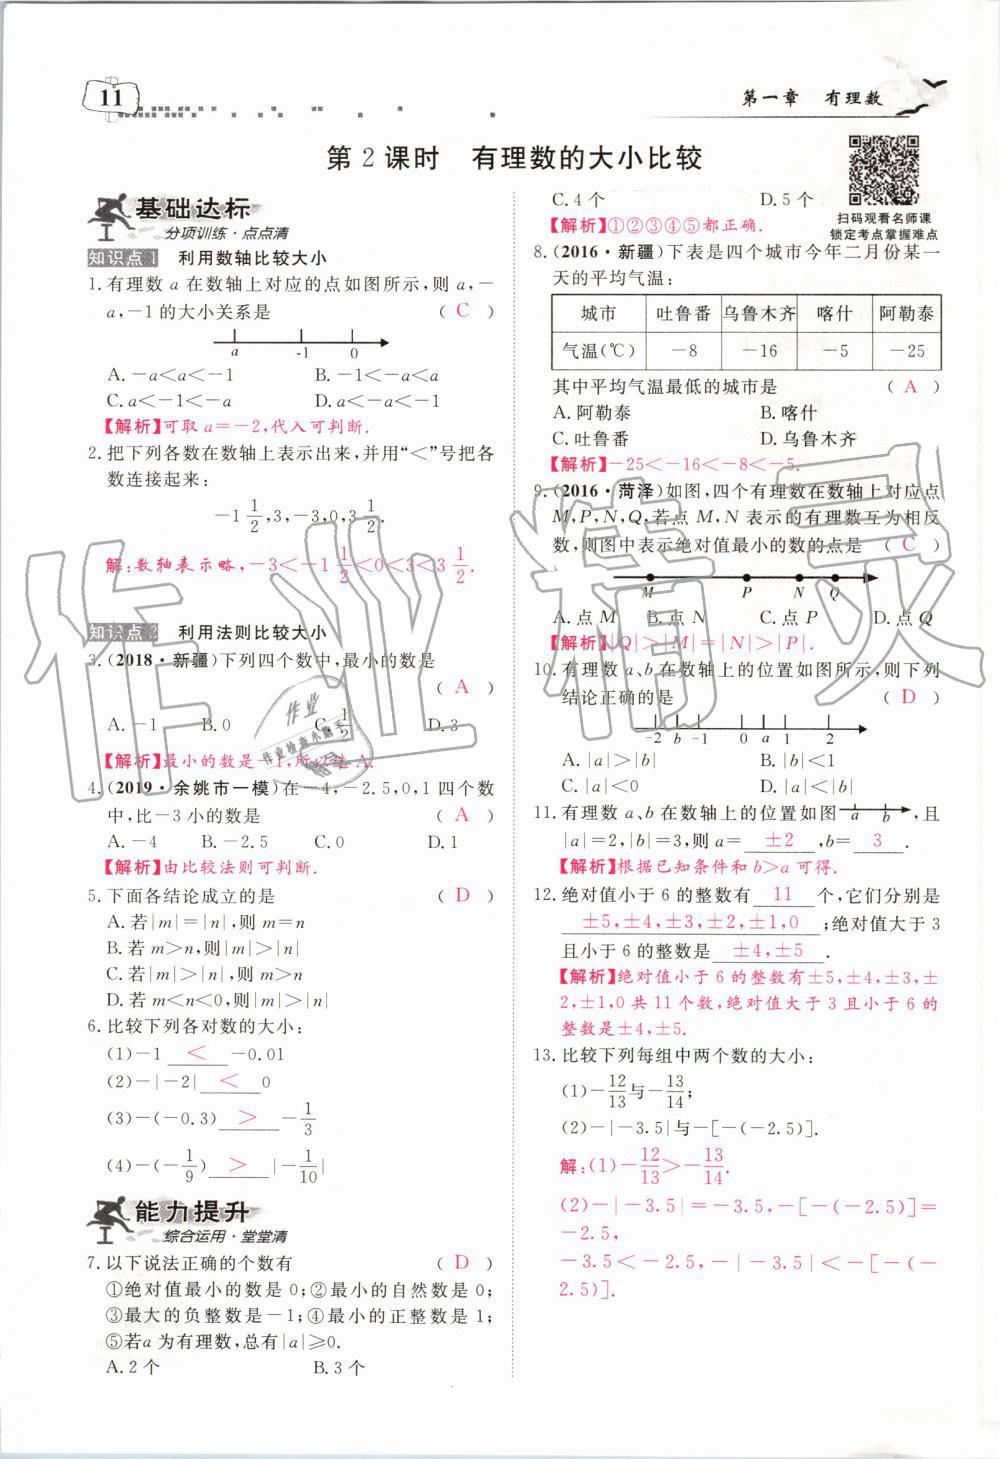 11
第一章 有理数
第2课时 有理数的大小比较
基础达标
分项训练·点点清
知识点1 利用数轴比较大小
1.有理数a在数轴上对应的点如图所示,则a,-
a,-1的大小关系是 ( C )
a -1 0
A.-a<a<-1 B.-1<-a<a
C.a<-1<-a D.a<-a<-1
【解析】可取a=-2,代入可判断.
2.把下列各数在数轴上表示出来,并用“<”号把各
数连接起来:
-1 1/2,3,-3,0,3 1/2.
解:数轴表示略,-3<-1 1/2<0<3<3 1/2.
知识点2 利用法则比较大小
3.(2018·新疆)下列四个数中,最小的数是
( A )
A.-1 B.0 C.1/2 D.3
【解析】最小的数是-1,所以选A.
4.(2019·余姚市一模)在-4,-2.5,0,1四个数
中,比-3小的数是 ( A )
A.-4 B.-2.5 C.0 D.1
【解析】由比较法则可判断.
5.下面各结论成立的是 ( D )
A.若|m|=|n|,则m=n
B.若m>n,则|m|>|n|
C.若|m|>|n|,则m>n
D.若m<n<0,则|m|>|n|
6.比较下列各对数的大小:
(1)-1 < -0.01
(2)-|-2| < 0
(3)-(-0.3) > -1/3
(4)-(-1/9) > |-1/10|
能力提升
综合运用·堂堂清
7.以下说法正确的个数有 ( D )
①绝对值最小的数是0;②最小的自然数是0;
③最大的负整数是-1;④最小的正整数是1;
⑤若a为有理数,总有|a|≥0.
A.2个 B.3个
C.4个 D.5个
【解析】①②③④⑤都正确.
扫码观看名师课
锁定考点掌握难点
8.(2016·新疆)下表是四个城市今年二月份某一
天的平均气温:
城市 吐鲁番 乌鲁木齐 喀什 阿勒泰
气温(℃) -8 -16 -5 -25
其中平均气温最低的城市是 ( A )
A.阿勒泰 B.喀什
C.吐鲁番 D.乌鲁木齐
【解析】-25<-16<-8<-5.
9.(2016·菏泽)如图,四个有理数在数轴上对应点
M,P,N,Q,若点M,N表示的有理数互为相反
数,则图中表示绝对值最小的数的点是 ( C )
M P N Q
A.点M B.点N C.点P D.点Q
【解析】|Q|>|M|=|N|>|P|.
10.有理数a、b在数轴上的位置如图所示,则下列
结论正确的是 ( D )
-2 b -1 0 a 1 2
A.|a|>|b| B.|b|<1
C.|a|<0 D.|a|<|b|
11.有理数a、b在数轴上的位置如图 a b ,且
|a|=2,|b|=3,则a= ±2 ,b= 3 .
【解析】根据已知条件和b>a可得.
12.绝对值小于6的整数有 11 个,它们分别是
±5,±4,±3,±2,±1,0 ;绝对值大于3
且小于6的整数是 ±4,±5 .
【解析】绝对值小于6的整数有±5,±4,±3,±
2,±1,0共11个数,绝对值大于3且小于6的
整数是±4,±5.
13.比较下列每组中两个数的大小:
(1)-12/13与-13/14;
(2)-|-3.5|与-[-(-2.5)].
解:(1)-12/13>-13/14.
(2)-|-3.5|=-3.5,-[-(-2.5)]=
-2.5,
-3.5<-2.5,-|-3.5|<-[-(-
2.5)].
作业精灵
作业
作业检查小助手